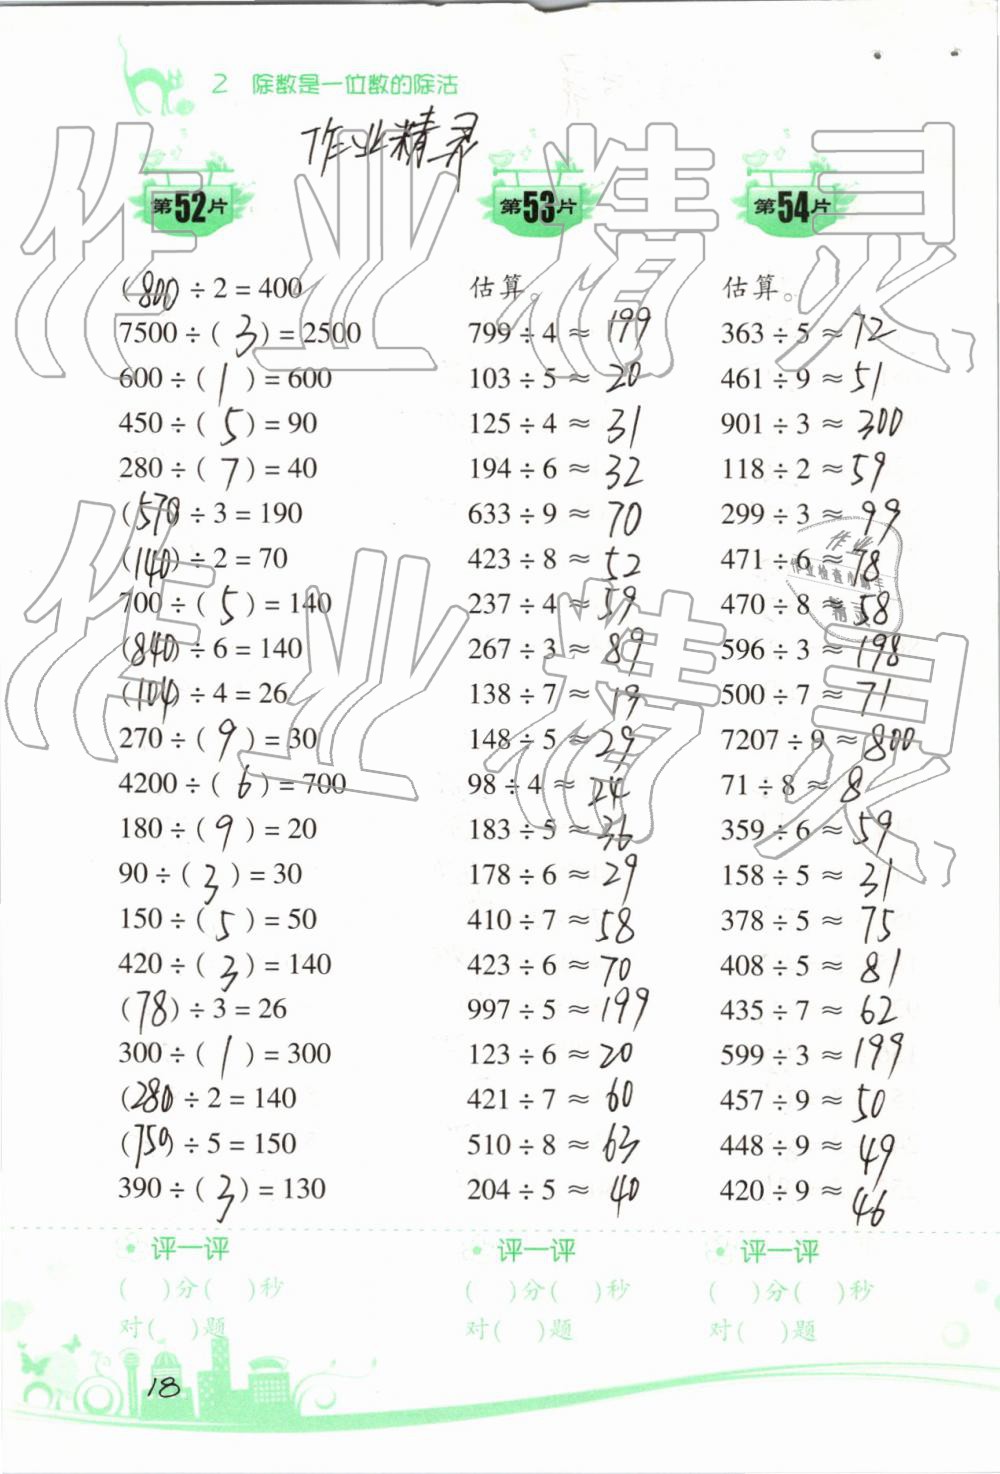 2 除数是一位数的除法
作业精灵
第52片
(800)÷2=400
7500÷(3)=2500
600÷(1)=600
450÷(5)=90
280÷(7)=40
(570)÷3=190
(140)÷2=70
700÷(5)=140
(840)÷6=140
(104)÷4=26
270÷(9)=30
4200÷(6)=700
180÷(9)=20
90÷(3)=30
150÷(5)=50
420÷(3)=140
(78)÷3=26
300÷(1)=300
(280)÷2=140
(750)÷5=150
390÷(3)=130
评一评
( )分( )秒
对( )题
第53片
估算。
799÷4≈199
103÷5≈20
125÷4≈31
194÷6≈32
633÷9≈70
423÷8≈52
237÷4≈59
267÷3≈89
138÷7≈19
148÷5≈29
98÷4≈24
183÷5≈36
178÷6≈29
410÷7≈58
423÷6≈70
997÷5≈199
123÷6≈20
421÷7≈60
510÷8≈63
204÷5≈40
评一评
( )分( )秒
对( )题
第54片
估算。
363÷5≈72
461÷9≈51
901÷3≈300
118÷2≈59
299÷3≈99
471÷6≈78
470÷8≈58
596÷3≈198
500÷7≈71
7207÷9≈800
71÷8≈8
359÷6≈59
158÷5≈31
378÷5≈75
408÷5≈81
435÷7≈62
599÷3≈199
457÷9≈50
448÷9≈49
420÷9≈46
评一评
( )分( )秒
对( )题
18
作业精灵
作业精灵
作业
精灵